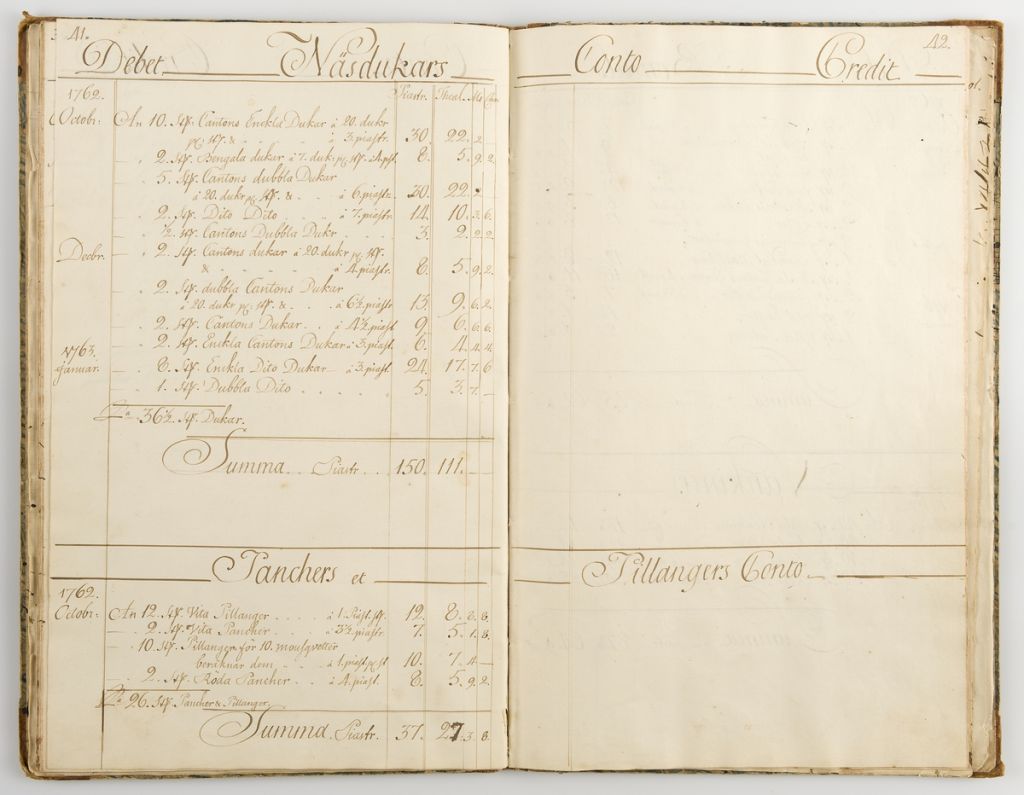 41.
Debet Näsdukars
1762. Piastr. Theal. Ms
Octobr: An 10. St. Cantons Enckla Dukar à 20. dukr
pr St. & à 3. piastr. 30 22. 2.
2. St. Bengala dukar à 7. duk: pr St. à 4. pst 8. 5. 9. 2.
5. St. Cantons dubbla Dukar
à 20. dukr pr St. & à 6. piastr. 30. 22. 2.
2. St. Dito Dito à 7. piastr. 14. 10. 3. 6.
½. St. Cantons Dubbla Dukr 3. 2. 2. 2.
Decbr. 2. St. Cantons dukar à 20. dukr pr St.
& à 4. piastr. 8. 5. 9. 2.
2. St. dubbla Cantons Dukar
à 20. dukr pr St. & à 6½ piastr. 13. 9. 6. 2.
2. St. Cantons Dukar à 4½ piast. 9. 6. 6. 6.
2. St. Enckla Cantons Dukar à 3. piast. 6. 4. 4. 4.
1763.
Januar. 8. St. Enckla Dito Dukar à 3. piast. 24. 17. 7. 6
1. St. Dubbla Dito 5. 3. 7. —
36½ St. Dukar.
Summa Piastr. 150. 111. — —
Panchers et
1762.
Octobr: An 12. St. Vita Pillanger à 1. Piast. st. 12. 8. 8. 8.
2. St. Vita Pancher à 3½ piastr. 7. 5. 1. 8.
10. St. Pillanger för 10. mousqvetter
beräknar dem à 1. piast. pr st 10. 7. 4. —
2. St. Röda Pancher à 4. piast. 8. 5. 9. 2.
26. St. Pancher & Pillanger
Summa Piastr. 37. 27. 3. 8.
42.
Conto Credit
Pillangers Conto